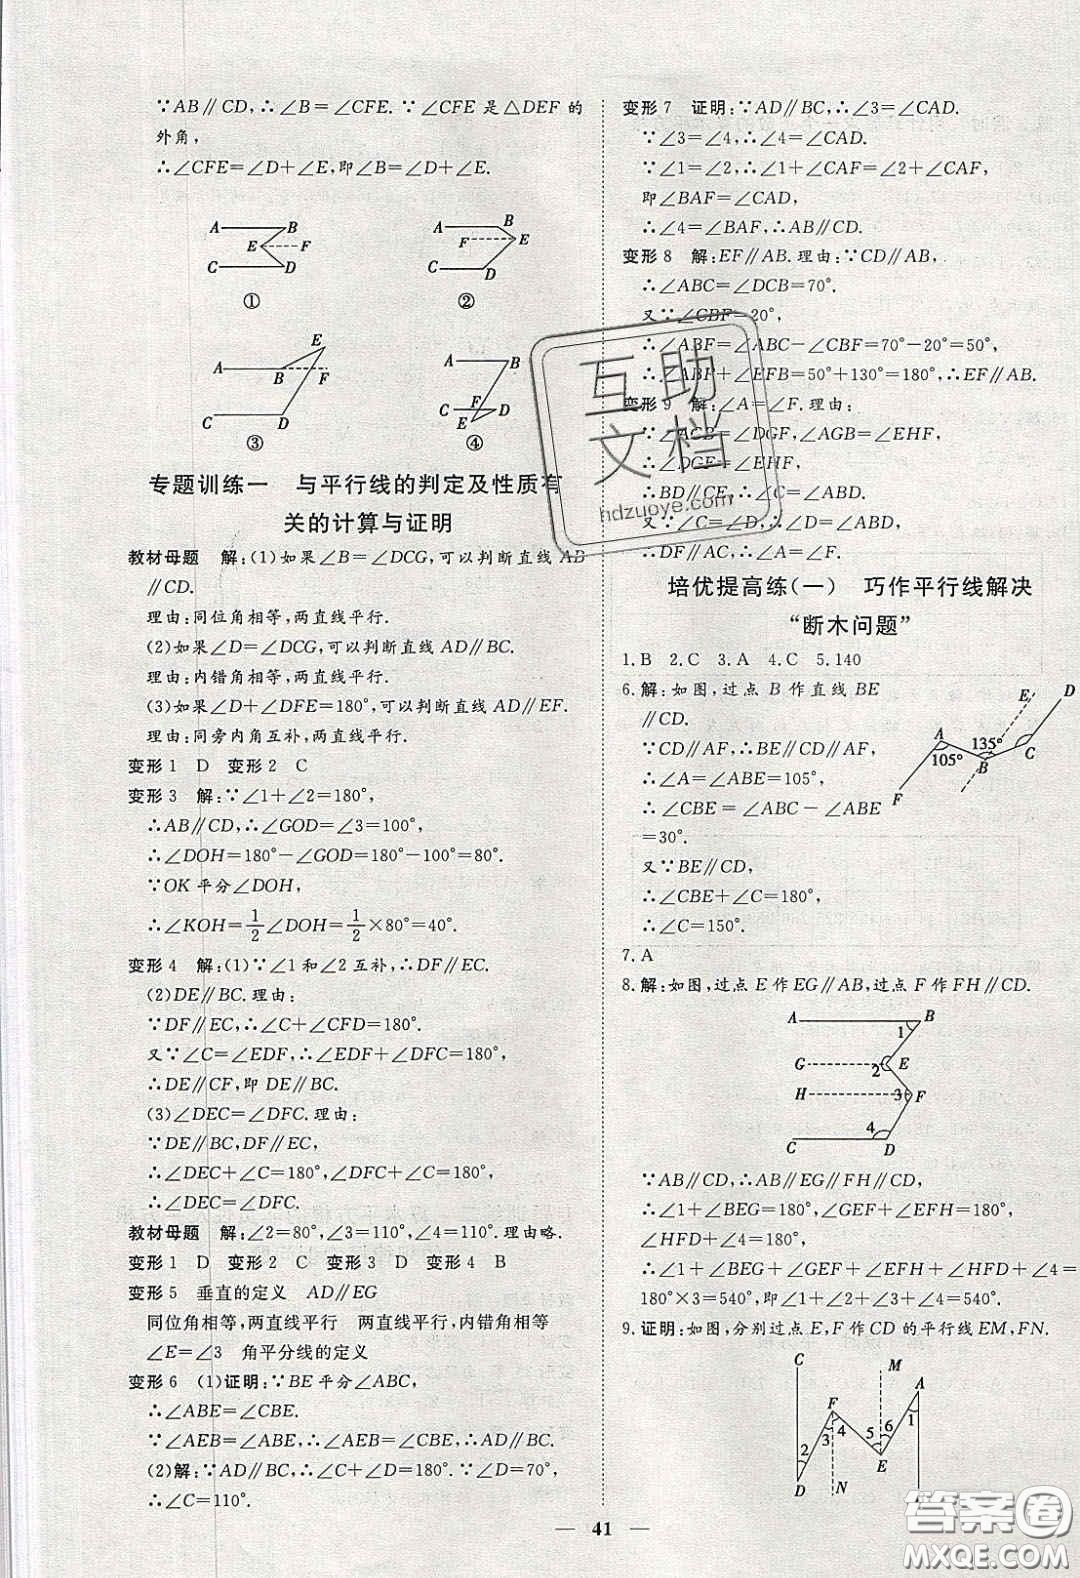 ∵AB∥CD,∴∠B=∠CFE. ∵∠CFE 是△DEF 的
外角,
∴∠CFE=∠D+∠E,即∠B=∠D+∠E.
A B E F C D
①
A B F E C D
②
E A B F C D
③
A B F C D E
④
专题训练一　与平行线的判定及性质有
关的计算与证明
教材母题　解:(1)如果∠B=∠DCG,可以判断直线 AB
∥CD.
理由:同位角相等,两直线平行.
(2)如果∠D=∠DCG,可以判断直线 AD∥BC.
理由:内错角相等,两直线平行.
(3)如果∠D+∠DFE=180°,可以判断直线 AD∥EF.
理由:同旁内角互补,两直线平行.
变形 1　D　变形 2　C
变形 3　解:∵∠1+∠2=180°,
∴AB∥CD,∴∠GOD=∠3=100°,
∴∠DOH=180°-∠GOD=180°-100°=80°.
∵OK 平分∠DOH,
∴∠KOH=1/2∠DOH=1/2×80°=40°.
变形 4　解:(1)∵∠1 和∠2 互补,∴DF∥EC.
(2)DE∥BC.理由:
∵DF∥EC,∴∠C+∠CFD=180°.
又∵∠C=∠EDF,∴∠EDF+∠DFC=180°,
∴DE∥CF,即 DE∥BC.
(3)∠DEC=∠DFC.理由:
∵DE∥BC,DF∥EC,
∴∠DEC+∠C=180°,∠DFC+∠C=180°,
∴∠DEC=∠DFC.
教材母题　解:∠2=80°,∠3=110°,∠4=110°.理由略.
变形 1　D　变形 2　C　变形 3　D　变形 4　B
变形 5　垂直的定义　AD∥EG
同位角相等,两直线平行　两直线平行,内错角相等
∠E=∠3　角平分线的定义
变形 6　(1)证明:∵BE 平分∠ABC,
∴∠ABE=∠CBE.
∵∠AEB=∠ABE,∴∠AEB=∠CBE,∴AD∥BC.
(2)解:∵AD∥BC,∴∠D+∠C=180°.∵∠D=70°,
∴∠C=110°.
变形 7　证明:∵AD∥BC,∴∠3=∠CAD.
∵∠3=∠4,∴∠4=∠CAD.
∵∠1=∠2,∴∠1+∠CAF=∠2+∠CAF,
即∠BAF=∠CAD,
∴∠4=∠BAF,∴AB∥CD.
变形 8　解:EF∥AB.理由:∵CD∥AB,
∴∠ABC=∠DCB=70°.
又∵∠CBF=20°,
∴∠ABF=∠ABC-∠CBF=70°-20°=50°,
∴∠ABF+∠EFB=50°+130°=180°,∴EF∥AB.
变形 9　解:∠A=∠F.理由:
∵∠AGB=∠DGF,∠AGB=∠EHF,
∴∠DGF=∠EHF,
∴BD∥CE,∴∠C=∠ABD.
又∵∠C=∠D,∴∠D=∠ABD,
∴DF∥AC,∴∠A=∠F.
培优提高练(一)　巧作平行线解决
“断木问题”
1.B　2.C　3.A　4.C　5.140
6.解:如图,过点 B 作直线 BE
∥CD.
∵CD∥AF,∴BE∥CD∥AF.
∴∠A=∠ABE=105°,
∴∠CBE=∠ABC-∠ABE
=30°.
又∵BE∥CD,
∴∠CBE+∠C=180°,
∴∠C=150°.
E D A 135° 105° B C F
7.A
8.解:如图,过点 E 作 EG∥AB,过点 F 作 FH∥CD.
A 1 B
G 2 E
H 3 F
4
C D
∵AB∥CD,∴AB∥EG∥FH∥CD,
∴∠1+∠BEG=180°,∠GEF+∠EFH=180°,
∠HFD+∠4=180°,
∴∠1+∠BEG+∠GEF+∠EFH+∠HFD+∠4=
180°×3=540°,即∠1+∠2+∠3+∠4=540°.
9.证明:如图,分别过点 E,F 作 CD 的平行线 EM,FN.
C M A
F 4 3 5 6 1
2 E
D N B
— 41 —
互助
文档
hdzuoye.com
答案圈
MXQE.COM